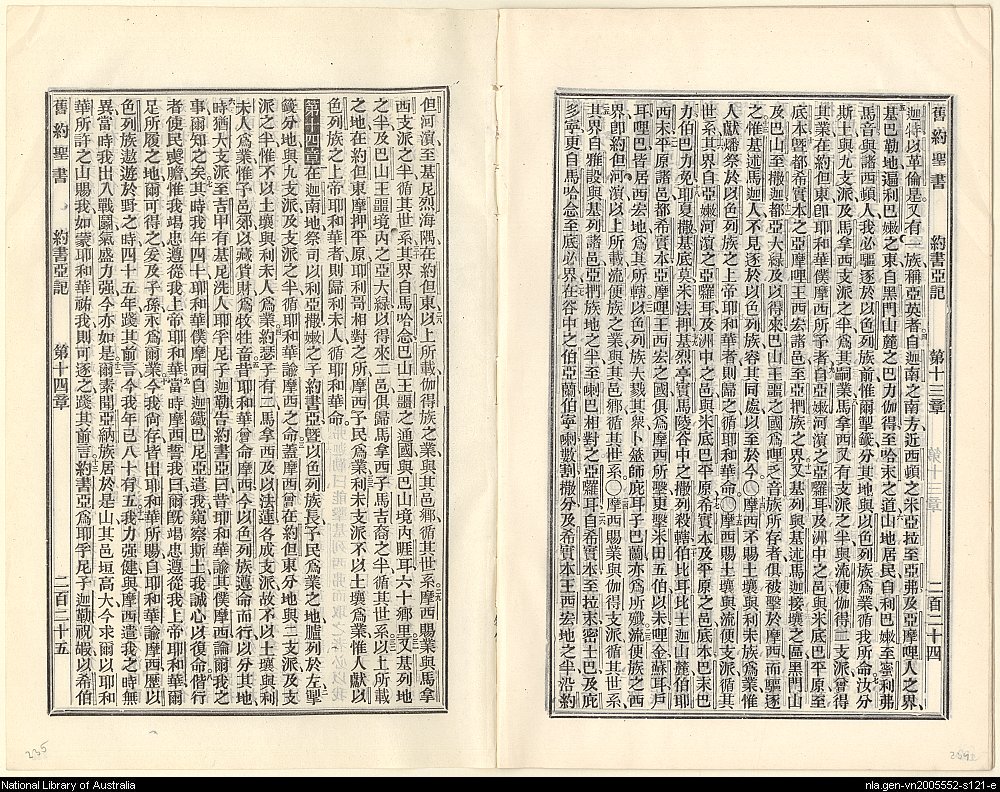 舊約聖書
約書亞記
第十三章
二百二十四
迦特以革倫是又有一族稱亞英者自迦南之南方近西頓之米亞拉至亞弗及亞摩哩人之界
基巴勒地遍利巴嫩之東自黑門山麓之巴力伽得至哈末之道山地居民自利巴嫩至蜜利弗
馬音與諸西頓人我必驅逐於以色列族前惟爾掣籤分其地與以色列族為業循我所命汝分
斯土與九支派及馬拿西支派之半為其嗣業馬拿西又有支派之半與流便伽得二支派曾得
其業在約但東卽耶和華僕摩西所予者自亞嫩河濱之亞羅耳及洲中之邑與米底巴平原至
底本曁都希實本之亞摩哩王西宏諸邑至亞捫族之界又基列與基述馬迦接壤之區黑門山
及巴山至撒迦都亞大綠及以得來巴山王噩之國為哩乏音族所存者俱被擊於摩西而驅逐
之惟基述馬迦人不見逐於以色列族容其同處以至於今摩西不賜土壤與利未族為業惟
人獻燔祭於以色列族之上帝耶和華者則歸之循耶和華命摩西賜土壤與流便支派循其
世系其界自亞嫩河濱之亞羅耳及洲中之邑與米底巴平原希實本及平原之邑底本巴末巴
力伯巴力免耶夏撒基底莫米法押基烈亭實馬陵谷中之撒列殺轄伯比耳比士迦山麓伯耶
西末平原諸邑都希實本亞摩哩王西宏之國俱為摩西所擊更擊米田五伯以未哩金蘇耳戶
耳哩巴皆居西宏地為其所轄以色列族大戮其衆卜筮師庇耳子巴蘭亦為所殲流便族之西
界卽約但河濱以上所載流便族之業與其邑鄉循其世系摩西賜業與伽得支派循其世系
其界自雅設與基列諸邑亞捫族地之半至喇巴相對之亞羅耳自希實本至拉末密士巴及庇
多寧更自馬哈念至底必界在谷中之伯亞蘭伯寧喇數割撒分及希實本王西宏地之半沿約
但河濱至基尼烈海隅在約但東以上所載伽得族之業與其邑鄉循其世系摩西賜業與馬拿
西支派之半循其世系其界自馬哈念巴山王噩之通國與巴山境內睚耳六十鄉里又基列地
之半及巴山王噩境內之亞大綠以得來二邑俱歸馬拿西子馬吉裔之半循其世系以上所載
之地在約但東摩押平原耶利哥相對之所摩西予民為業利未支派不以土壤為業惟人獻以
色列族之上帝耶和華者則歸利未人循耶和華命
第十四章在迦南地祭司以利亞撒嫩之子約書亞曁以色列族長予民為業之地臚列於左掣
籤分地與九支派及支派之半循耶和華諭摩西之命蓋摩西曾在約但東分地與二支派及支
派之半惟不以土壤與利未人為業約瑟子有二馬拿西及以法蓮各成支派故不以土壤與利
未人為業惟予邑郊以藏貨財為牧牲畜昔耶和華曾命摩西今以色列族遵命而行以分其地
時猶大支派至吉甲有基尼洗人耶孚尼子迦勒告約書亞曰昔耶和華諭其僕摩西論爾我之
事爾知之矣其時我年四十耶和華僕摩西自迦鐵巴尼亞遣我窺察斯土我誠心以復命偕行
者使民喪膽惟我竭忠遵從我上帝耶和華當時摩西誓我曰爾旣竭忠遵從我上帝耶和華爾
足所履之地爾可得之爰及子孫永為爾業今我尙存皆出耶和華所賜自耶和華諭摩西歷以
色列族遨遊於野之時四十五年踐其前言今我年已八十有五我力强健與摩西遣我之時無
異當時我出入戰鬬氣盛力强今亦如是爾素聞亞納族居於是山其邑垣高大今求爾以耶和
華所許之山賜我如蒙耶和華祐我則可逐之踐其前言約書亞為耶孚尼子迦勒祝嘏以希伯
舊約聖書
約書亞記
第十四章
二百二十五
235
National Library of Australia
nla.gen-vn2005552-s121-e